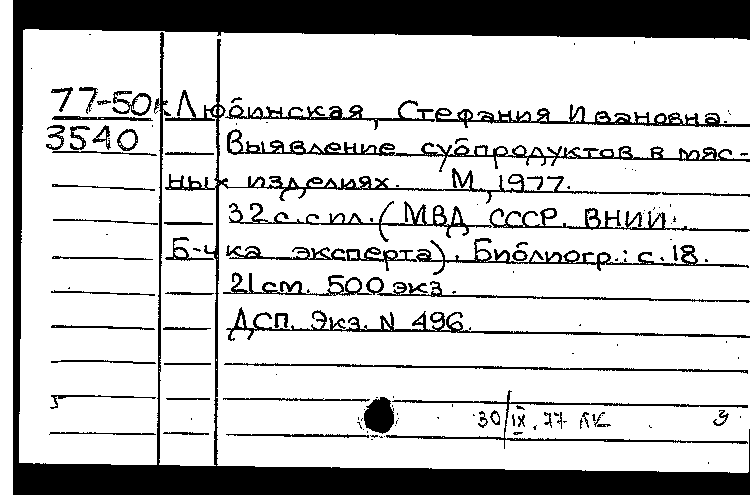 77-50к Любинская, Стефания Ивановна.
3540 Выявление субпродуктов в мяс-
ных изделиях. М, 1977.
32 с. с ил. (МВД СССР. ВНИИ.
Б-чка эксперта). Библиогр.: с. 18.
21 см. 500 экз.
ДСП. Экз. N 496.
30/IX.77